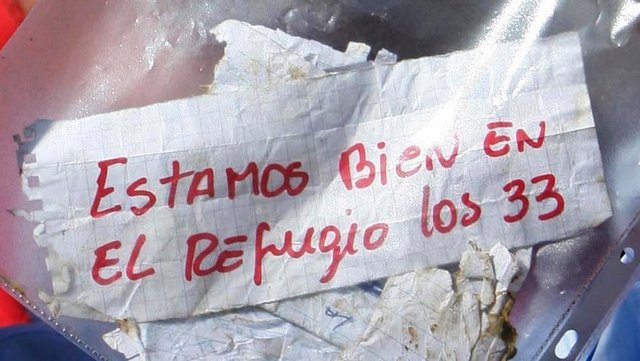 ESTAMOS BIEN EN
EL REFUGIO los 33